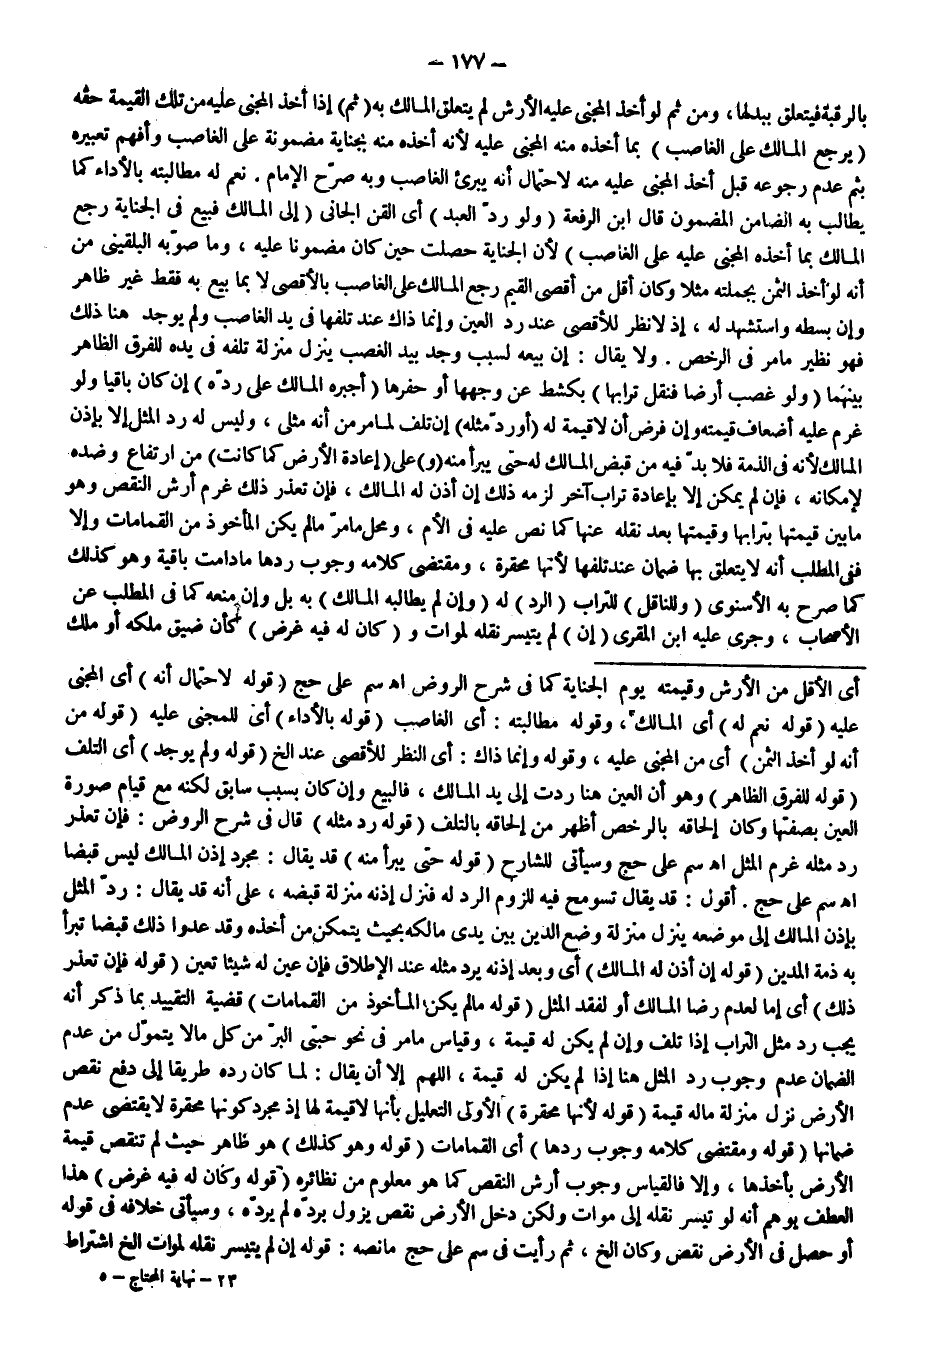 - ١٧٧ -
بالرقبة فيتعلق ببدلها ، ومن ثم لو أخذ المجنى عليه الأرش لم يتعلق المالك به ( ثم ) إذا أخذ المجنى عليه من تلك القيمة حقه
( يرجع المالك على الغاصب ) بما أخذه منه المجنى عليه لأنه أخذه منه بجناية مضمونة على الغاصب وأفهم تعبيره
بثم عدم رجوعه قبل أخذ المجنى عليه منه لاحتمال أنه يبرئ الغاصب وبه صرّح الإمام . نعم له مطالبته بالأداء كما
يطالب به الضامن المضمون قال ابن الرفعة ( ولو ردّ العبد ) أى القن الجانى ( إلى المالك فبيع فى الجناية رجع
المالك بما أخذه المجنى عليه على الغاصب ) لأن الجناية حصلت حين كان مضمونا عليه ، وما صوّبه البلقينى من
أنه لو أخذ الثمن بجملته مثلا وكان أقل من أقصى القيم رجع المالك على الغاصب بالأقصى لا بما بيع به فقط غير ظاهر
وإن بسطه واستشهد له ، إذ لانظر للأقصى عند رد العين وإنما ذاك عند تلفها فى يد الغاصب ولم يوجد هنا ذلك
فهو نظير مامر فى الرخص . ولا يقال : إن بيعه لسبب وجد بيد الغصب ينزل منزلة تلفه فى يده للفرق الظاهر
بينهما ( ولو غصب أرضا فنقل ترابها ) بكشط عن وجهها أو حفرها ( أجبره المالك على ردّه ) إن كان باقيا ولو
غرم عليه أضعاف قيمته وإن فرض أن لاقيمة له ( أو ردّ مثله ) إن تلف لمامر من أنه مثلى ، وليس له رد المثل إلا بإذن
المالك لأنه فى الذمة فلا بدّ فيه من قبض المالك له حتى يبرأ منه ( و ) على ( إعادة الأرض كما كانت ) من ارتفاع وضده
لإمكانه ، فإن لم يمكن إلا بإعادة تراب آخر لزمه ذلك إن أذن له المالك ، فإن تعذر ذلك غرم أرش النقص وهو
مابين قيمتها بترابها وقيمتها بعد نقله عنها كما نص عليه فى الأم ، ومحل مامرّ مالم يكن المأخوذ من القمامات وإلا
ففى المطلب أنه لايتعلق بها ضمان عند تلفها لأنها محقرة ، ومقتضى كلامه وجوب ردها مادامت باقية وهو كذلك
كما صرح به الأسنوى ( وللناقل ) للتراب ( الرد ) له ( وإن لم يطالبه المالك ) به بل وإن منعه كما فى المطلب عن
الأصحاب ، وجرى عليه ابن المقرى ( إن ) لم يتيسر نقله لموات و ( كان له فيه غرض ) كأن ضيق ملكه أو ملك
أى الأقل من الأرش وقيمته يوم الجناية كما فى شرح الروض اه سم على حج ( قوله لاحتمال أنه ) أى المجنى
عليه ( قوله نعم له ) أى المالك ، وقوله مطالبته : أى الغاصب ( قوله بالأداء ) أى للمجنى عليه ( قوله من
أنه لو أخذ الثمن ) أى من المجنى عليه ، وقوله وإنما ذاك : أى النظر للأقصى عند الخ ( قوله ولم يوجد ) أى التلف
( قوله للفرق الظاهر ) وهو أن العين هنا ردت إلى يد المالك ، فالبيع وإن كان بسبب سابق لكنه مع قيام صورة
العين بصفتها وكان إلحاقه بالرخص أظهر من إلحاقه بالتلف ( قوله رد مثله ) قال فى شرح الروض : فإن تعذر
رد مثله غرم المثل اه سم على حج وسيأتى للشارح ( قوله حتى يبرأ منه ) قد يقال : مجرد إذن المالك ليس قبضا
اه سم على حج . أقول : قد يقال تسومح فيه للزوم الرد له فنزل إذنه منزلة قبضه ، على أنه قد يقال : ردّ المثل
بإذن المالك إلى موضعه ينزل منزلة وضع الدين بين يدى مالكه بحيث يتمكن من أخذه وقد عدوا ذلك قبضا تبرأ
به ذمة المدين ( قوله إن أذن له المالك ) أى وبعد إذنه يرد مثله عند الإطلاق فإن عين له شيئا تعين ( قوله فإن تعذر
ذلك ) أى إما لعدم رضا المالك أو لفقد المثل ( قوله مالم يكن المأخوذ من القمامات ) قضية التقييد بما ذكر أنه
يجب رد مثل التراب إذا تلف وإن لم يكن له قيمة ، وقياس مامر فى نحو حبتى البرّ من كل مالا يتموّل من عدم
الضمان عدم وجوب رد المثل هنا إذا لم يكن له قيمة ، اللهم إلا أن يقال : لما كان رده طريقا إلى دفع نقص
الأرض نزل منزلة ماله قيمة ( قوله لأنها محقرة ) الأولى التعليل بأنها لاقيمة لها إذ مجرد كونها محقرة لايقتضى عدم
ضمانها ( قوله ومقتضى كلامه وجوب ردها ) أى القمامات ( قوله وهو كذلك ) هو ظاهر حيث لم تنقص قيمة
الأرض بأخذها ، وإلا فالقياس وجوب أرش النقص كما هو معلوم من نظائره ( قوله وكان له فيه غرض ) هذا
العطف يوهم أنه لو تيسر نقله إلى موات ولكن دخل الأرض نقص يزول بردّه لم يردّه ، وسيأتى خلافه فى قوله
أو حصل فى الأرض نقص وكان الخ ، ثم رأيت فى سم على حج مانصه : قوله إن لم يتيسر نقله لموات الخ اشتراط
٢٣ - نهاية المحتاج - ٥